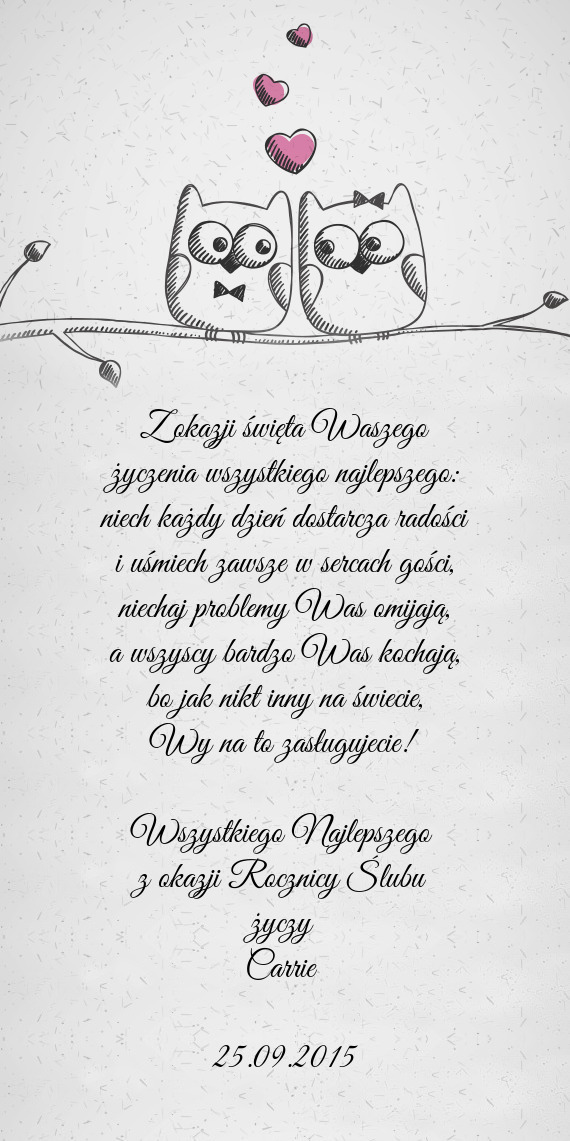 Z okazji święta Waszego
życzenia wszystkiego najlepszego:
niech każdy dzień dostarcza radości
i uśmiech zawsze w sercach gości,
niechaj problemy Was omijają,
a wszyscy bardzo Was kochają,
bo jak nikt inny na świecie,
Wy na to zasługujecie!

Wszystkiego Najlepszego
z okazji Rocznicy Ślubu
życzy
Carrie

25.09.2015